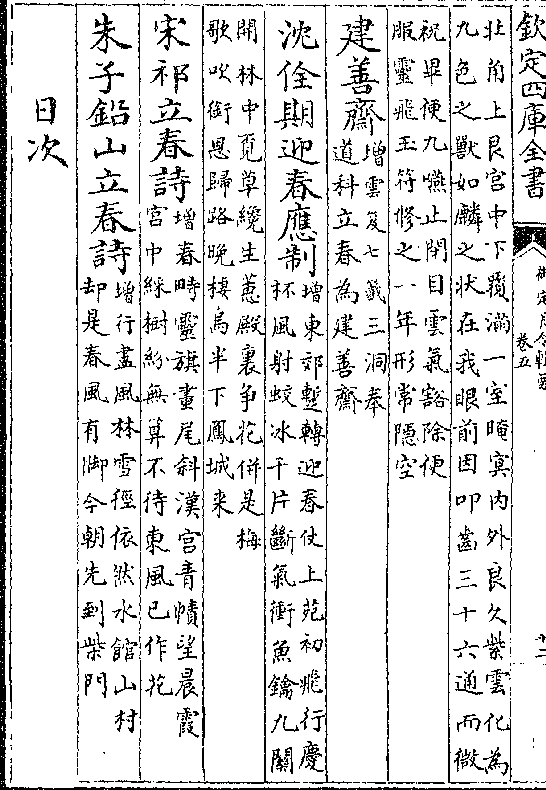 欽定四庫全書
御定月令輯要
卷五
十二
北角上艮宫中下覆滿一室晻冥内外良久紫雲化為
九色之獸如麟之狀在我眼前因叩齒三十六通而微
祝畢便九嚥止開目雲氣豁除便
服靈飛玉符修之一年形常隱空
建善齋
増雲笈七籖三洞奉
道科立春為建善齋
沈佺期迎春應制
増東郊暫轉迎春仗上苑初飛行慶
杯風射蛟冰千片斷氣衝魚鑰九關
開林中覓草纔生蕙殿裏爭花併是梅
歌吹銜恩歸路晚棲烏半下鳳城來
宋祁立春詩
増春時靈旗畫尾斜漢宫青幘望晨霞
宫中綵樹紛無算不待東風已作花
朱子鉛山立春詩
増行盡風林雪徑依然水館山村
却是春風有脚今朝先到柴門
目次